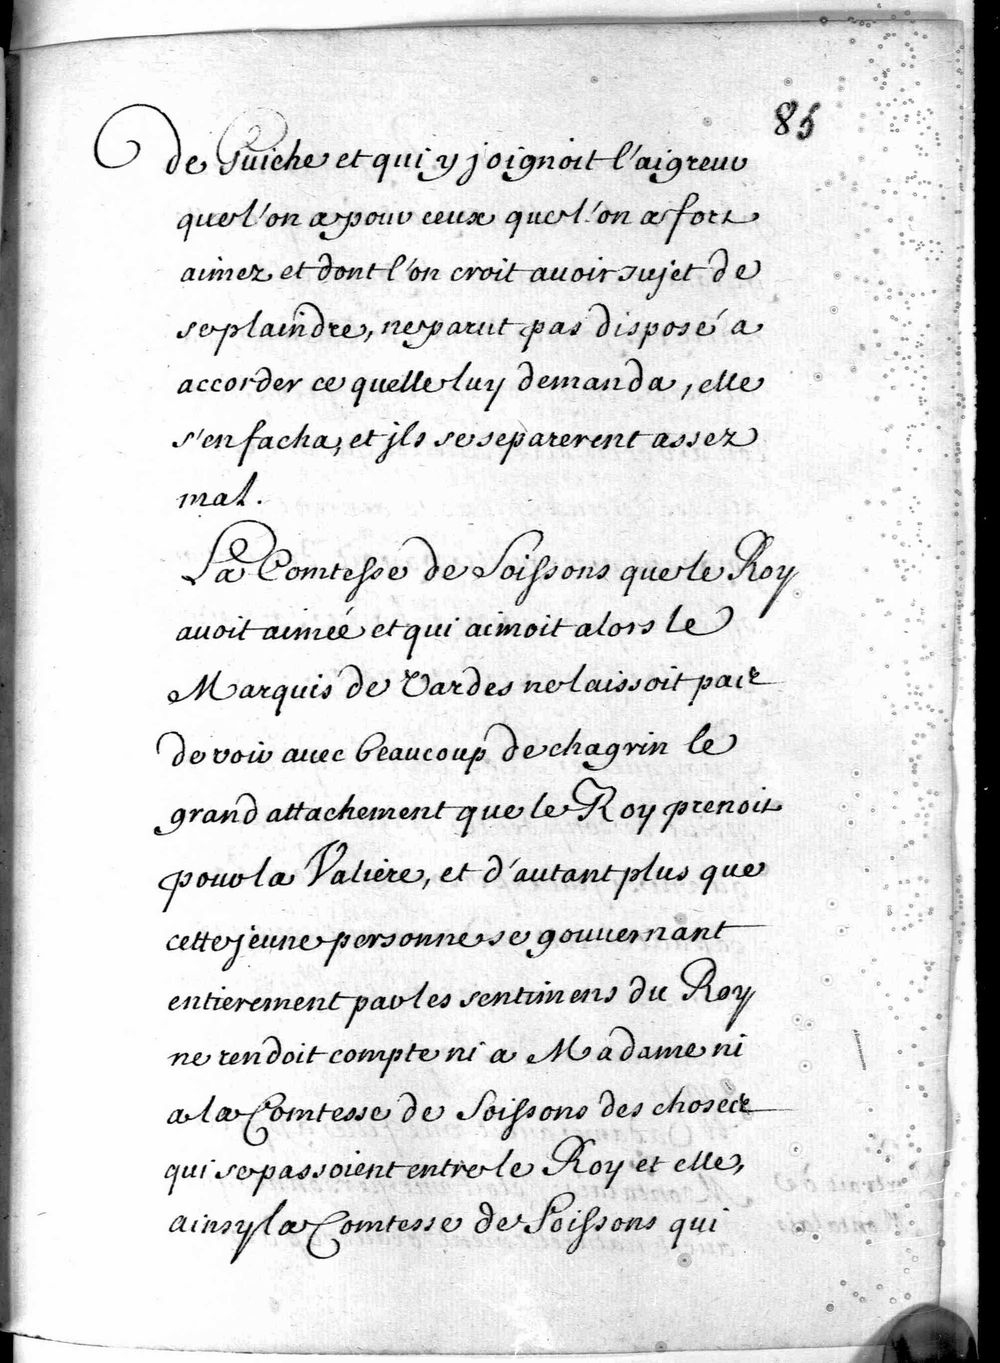 85
de Guiche et qui y joignoit l'aigreur
que l'on a pour ceux que l'on a fort
aimez et dont l'on croit avoir sujet de
se plaindre, ne parut pas disposé a
accorder ce quelle luy demanda, elle
s'en facha, et jls se separerent assez
mal.
La Comtesse de Soissons que le Roy
avoit aimée et qui aimoit alors le
Marquis de Vardes ne laissoit pas
de voir avec beaucoup de chagrin le
grand attachement que le Roy prenoit
pour la Valiere, et d'autant plus que
cette jeune personne se gouvernant
entierement par les sentimens du Roy
ne rendoit compte ni a Madame ni
a la Comtesse de Soissons des choses
qui se passoient entre le Roy et elle,
ainsy la Comtesse de Soissons qui